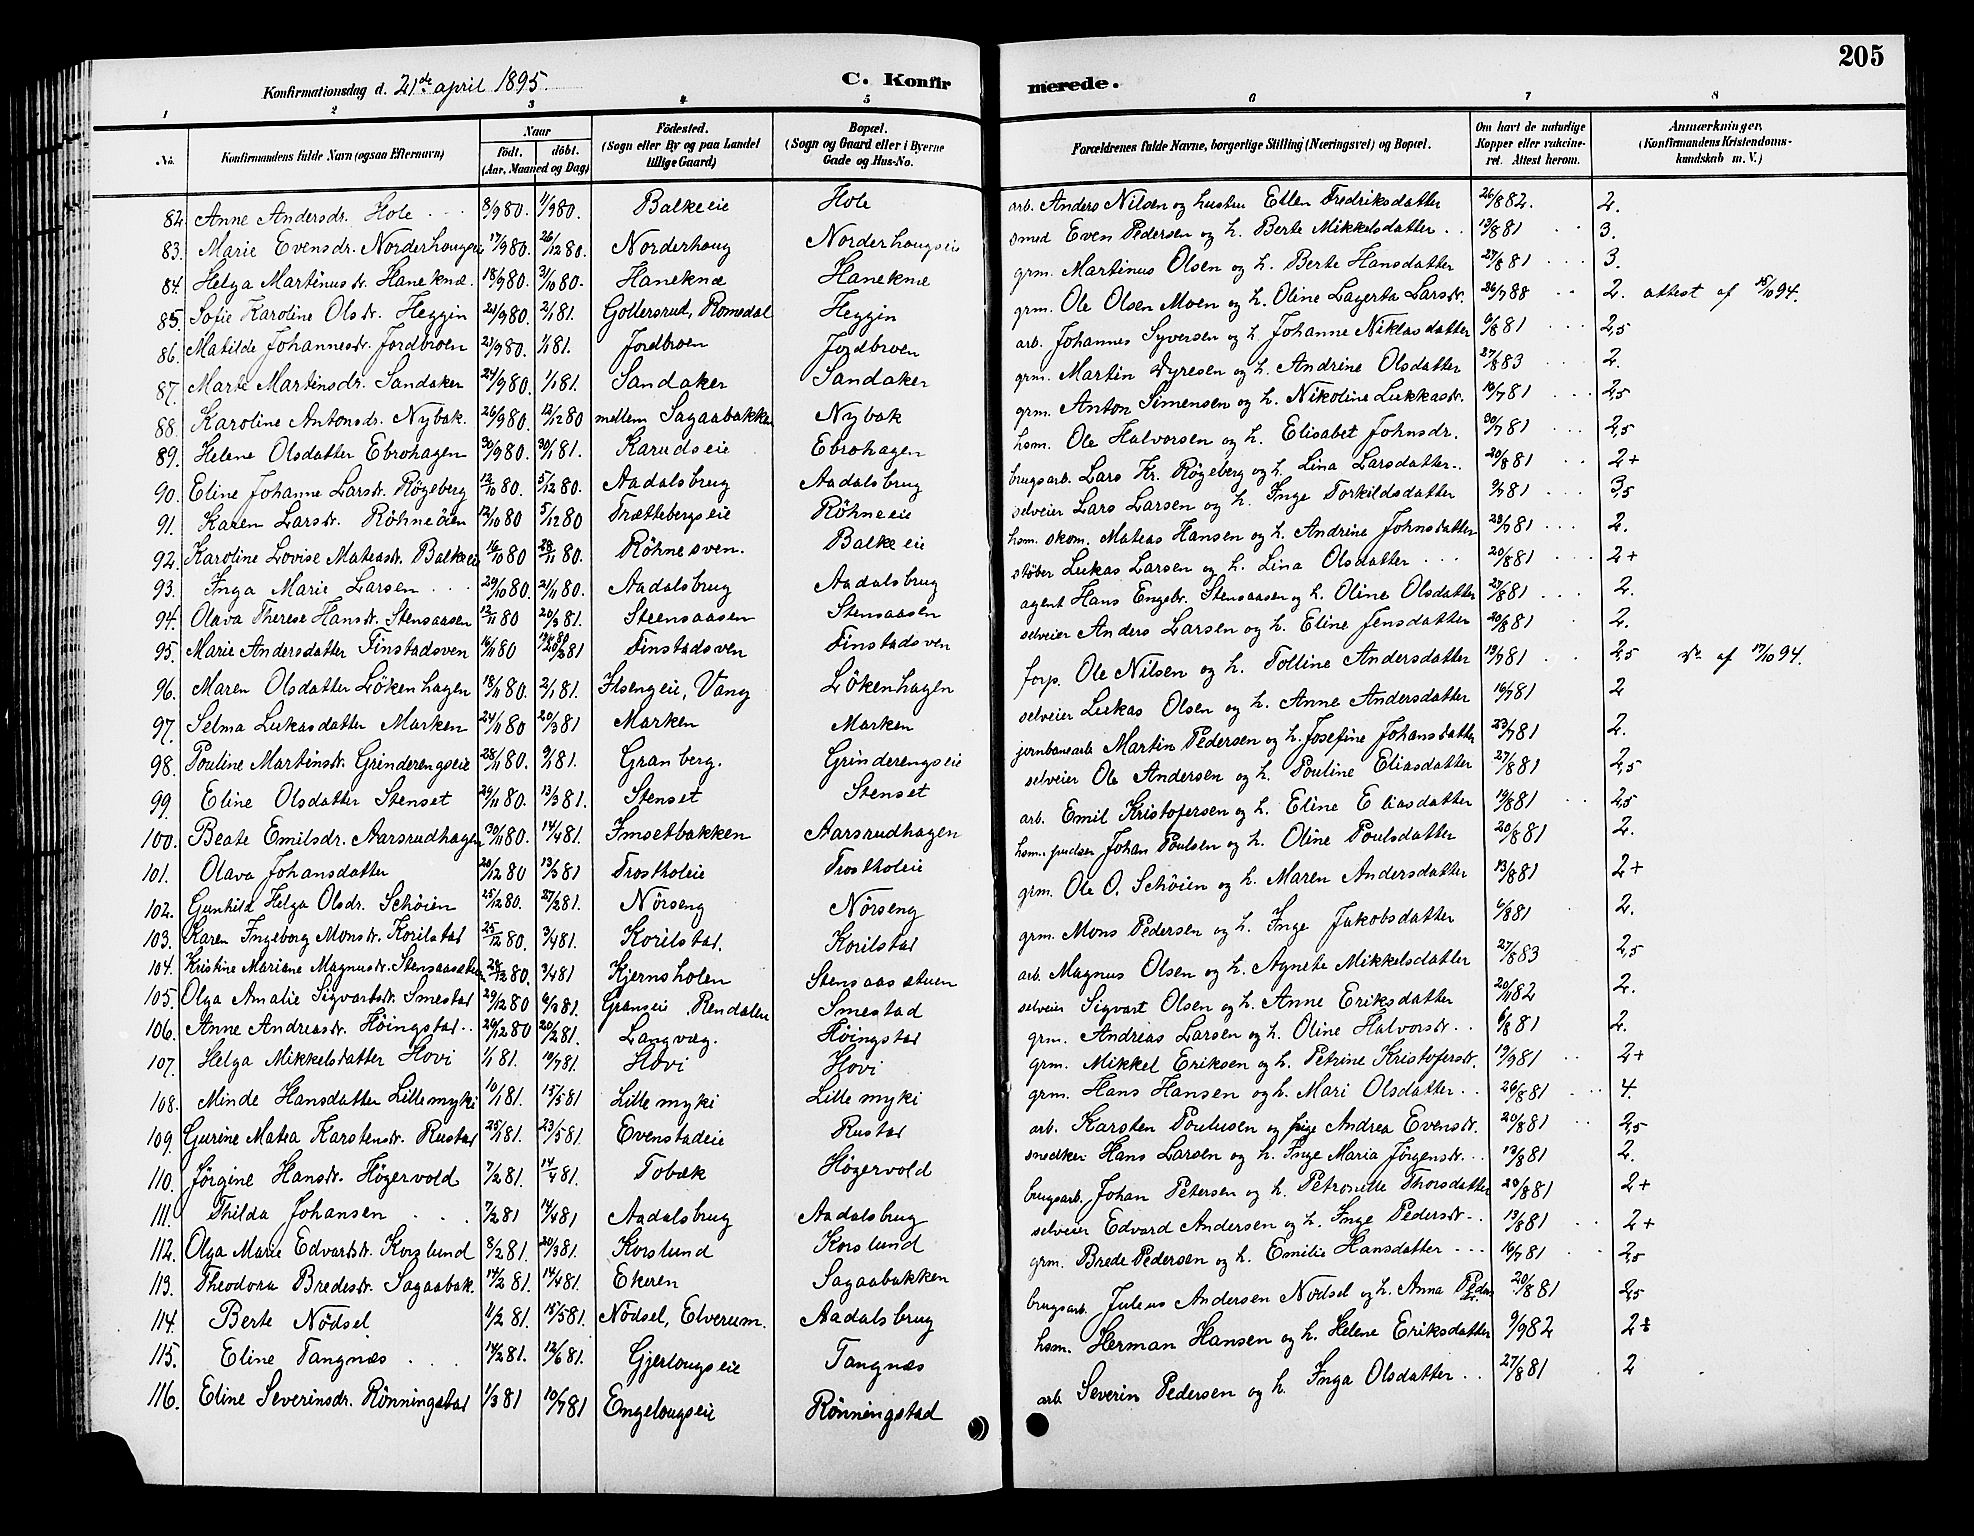 205
Konfirmationsdag d. 21de april 1895. C. Konfirmerede.
1 2 3 4 5 6 7 8
No. Konfirmandens fulde Navn (ogsaa Efternavn) Naar født. døbt. (Aar, Maaned og Dag) Fødested. (Sogn eller By og paa Landet tillige Gaard) Bopæl. (Sogn og Gaard eller i Byerne Gade og Hus-No. Forældrenes fulde Navne, borgerlige Stilling (Næringsvei) og Bopæl. Om havt de naturlige Kopper eller vakcineret. Attest herom. Anmærkninger, (Konfirmandens Kristendomskundskab m. V.)
82. Anne Andersdr. Hole 8/9 80. 1/9 80. Balkeeie Hole arb. Anders Nilsen og hustru Ellen Fredriksdatter 26/8 82. 2.
83. Marie Evensdr. Norderhougseie 17/9 80. 26/12 80. Norderhoug Norderhougseie smed Even Pedersen og h. Berte Mikkelsdatter 13/8 81 3.
84. Helga Martinusdr. Haneknæ. 18/9 80. 31/10 80. Haneknæ Haneknæ grm. Martinus Olsen og h. Berte Hansdatter 27/8 81 3.
85. Sofie Karoline Olsdr. Heggin 21/9 80. 2/1 81. Gollersrud, Romedal Heggin grm. Ole Olsen Moen og h. Oline Lagerta Larsdr. 26/7 88 2. attest af 18/10 94.
86. Matilde Johannesdr. Jordbroen 21/9 80. 1/1 81. Jordbroen Jordbroen arb. Johannes Syversen og h. Johanne Niklasdatter 6/8 81 2,5
87. Marte Martinsdr. Sandaker 24/9 80. 1/1 81. Sandaker Sandaker grm. Martin Dyresen og h. Andrine Olsdatter 27/8 83 2.
88. Karoline Antonsdr. Nybak. 26/9 80. 12/12 80 mellem Sagaabakken Nybak grm. Anton Simensen og h. Nikoline Lukkasdr. 16/7 81 2,5
89. Helene Olsdatter Ebrohagen 30/9 80. 30/1 81. Karudseie Ebrohagen hsm. Ole Halvorsen og h. Elisabet Johnsdr. 30/7 81 2,5
90. Eline Johanne Larsdr. Røgeberg 12/10 80. 5/12 80. Aadalsbrug Aadalsbrug brugsarb. Lars Kr. Røgeberg og h. Lina Larsdatter 20/8 81 2+
91. Karen Larsdr. Röhneöien 12/10 80 5/12 80 Trættebergseie Röhneeie selveier Lars Larsen og h. Inge Torkildsdatter 9/7 81 3,5
92. Karoline Lovise Mateasdr. Balkeeie 16/10 80 28/11 80. Röhnesven. Balkeeie hsm. skom. Mateas Hansen og h. Andrine Johnsdatter 23/7 81 2.
93. Inga Marie Larsen 29/10 80. 21/11 80. Aadalsbrug Aadalsbrug støber Lukas Larsen og h. Lina Olsdatter 20/8 81 2+
94. Olava Therese Hansdr. Stensaasen 12/11 80 20/3 81. Steensaasen Stensaasen agent Hans Engebr. Stensaasen og h. Oline Olsdatter 27/8 81 2.
95. Marie Andersdatter Finstadsven 16/11 80 20/2 81 Finstadsven Finstadsven selveier Anders Larsen og h. Eline Jensdatter 20/8 81 2.
96. Maren Olsdatter Lökenhagen 18/11 80. 2/1 81. Ilsengeie, Vang Lökenhagen forp. Ole Nilsen og h. Tolline Andersdatter 13/7 81 2,5 do af 17/10 94.
97. Selma Lukasdatter Marken 24/11 80 20/3 81 Marken Marken selveier Lukas Olsen og h. Anne Andersdatter 16/7 81 2
98. Pouline Martinsdr. Grinderengseie 28/11 80. 9/1 81. Granberg. Grinderengseie jernbanearb. Martin Pedersen og h. Josefine Johansdatter 23/7 81 2.
99. Eline Olsdatter Stenset 29/11 80. 13/3 81. Stenset Stenset selveier Ole Andersen og h. Pouline Eliasdatter 27/8 81 2,5
100. Beate Emilsdr. Aarsrudhagen 30/11 80. 14/4 81. Imsetbakken Aarsrudhagen arb. Emil Kristofersen og h. Eline Eliasdatter 19/8 81 2,5
101. Olava Johansdatter 20/12 80 13/3 81 Trostholeie Trostholeie hsm. Johan Poulsen og h. Oline Poulsdatter 20/8 81 2.
102. Gunhild Helga Olsdr. Schöien 25/12 80. 27/2 81. Nörseng Nörseng grm. Ole O. Schöien og h. Maren Andersdatter 13/8 81 2+
103. Karen Ingeborg Monsdr. Korilstad 25/12 80. 3/4 81. Korilstad. Korilstad grm. Mons Pedersen og h. Inge Jakobsdatter 6/8 81 2.
104. Kristine Mariane Magnusdr. Stensaasstuen 28/12 80. 3/4 81 Kjernsholen Stensaasstuen arb. Magnus Olsen og h. Agnete Mikkelsdatter 27/8 83 2,5
105. Olga Amalie Sigvartsdr. Smestad 29/12 80 6/3 81. Grangeie, Rendalen Smestad selveier Sigvart Olsen og h. Anne Eriksdatter 20/11 82 2.
106. Anne Andreasdr. Höingstad 29/12 80 20/2 81. Langvæg. Höingstad grm. Andreas Larsen og h. Oline Halvorsdr. 6/8 81 2.
107. Helga Mikkelsdatter Hovi 1/1 81. 10/7 81. Hovi Hovi grm. Mikkel Eriksen og h. Petrine Kristofersdr. 19/9 81 2+
108. Minde Hansdatter Lillemyki 10/1 81. 15/5 81 Lillemyki Lillemyki grm. Hans Hansen og h. Mari Olsdatter 26/8 81 4.
109. Gurine Matea Karstensdr. Rustad 25/1 81. 23/5 81 Evenstadeie Rustad arb. Karsten Poulusen og pige Andrea Evensdr. 20/8 81 2,5
110. Jørgine Hansdr. Högervold 7/2 81. 14/4 81. Tobæk Högervold snedker Hans Larsen og h. Inge Maria Jörgensdr. 13/8 81 2.
111. Thilda Johansen 7/2 81 14/4 81 Aadalsbrug Aadalsbrug brugsarb. Johan Petersen og h. Petronille Thorsdatter 20/8 81 2+
112. Olga Marie Edvardsdr. Korslund 8/2 81. 20/3 81. Korslund Korslund selveier Edvard Andersen og h. Inge Pedersdr. 13/8 81 2+
113. Theodora Bredesdr. Sagaabak. 14/2 81. 14/4 81. Ekeren Sagaabakken grm. Brede Pedersen og h. Emilie Hansdatter 16/7 81 2,5
114. Berte Nödsel 11/2 81. 15/5 81. Nödsel, Elverum. Aadalsbrug brugsarb. Julius Andersen Nödsel og h. Anna Pedersdr. 20/8 81 2,5
115. Eline Tangnæs 14/2 81. 12/6 81. Gjerlougseie Tangnæs hsm. Herman Hansen og h. Helene Eriksdatter 9/9 82 2÷
116. Eline Severinsdr. Rönningstad 1/3 81 10/7 81 Engelougseie Rönningstad arb. Severin Pedersen og h. Inga Olsdatter 27/8 81 2